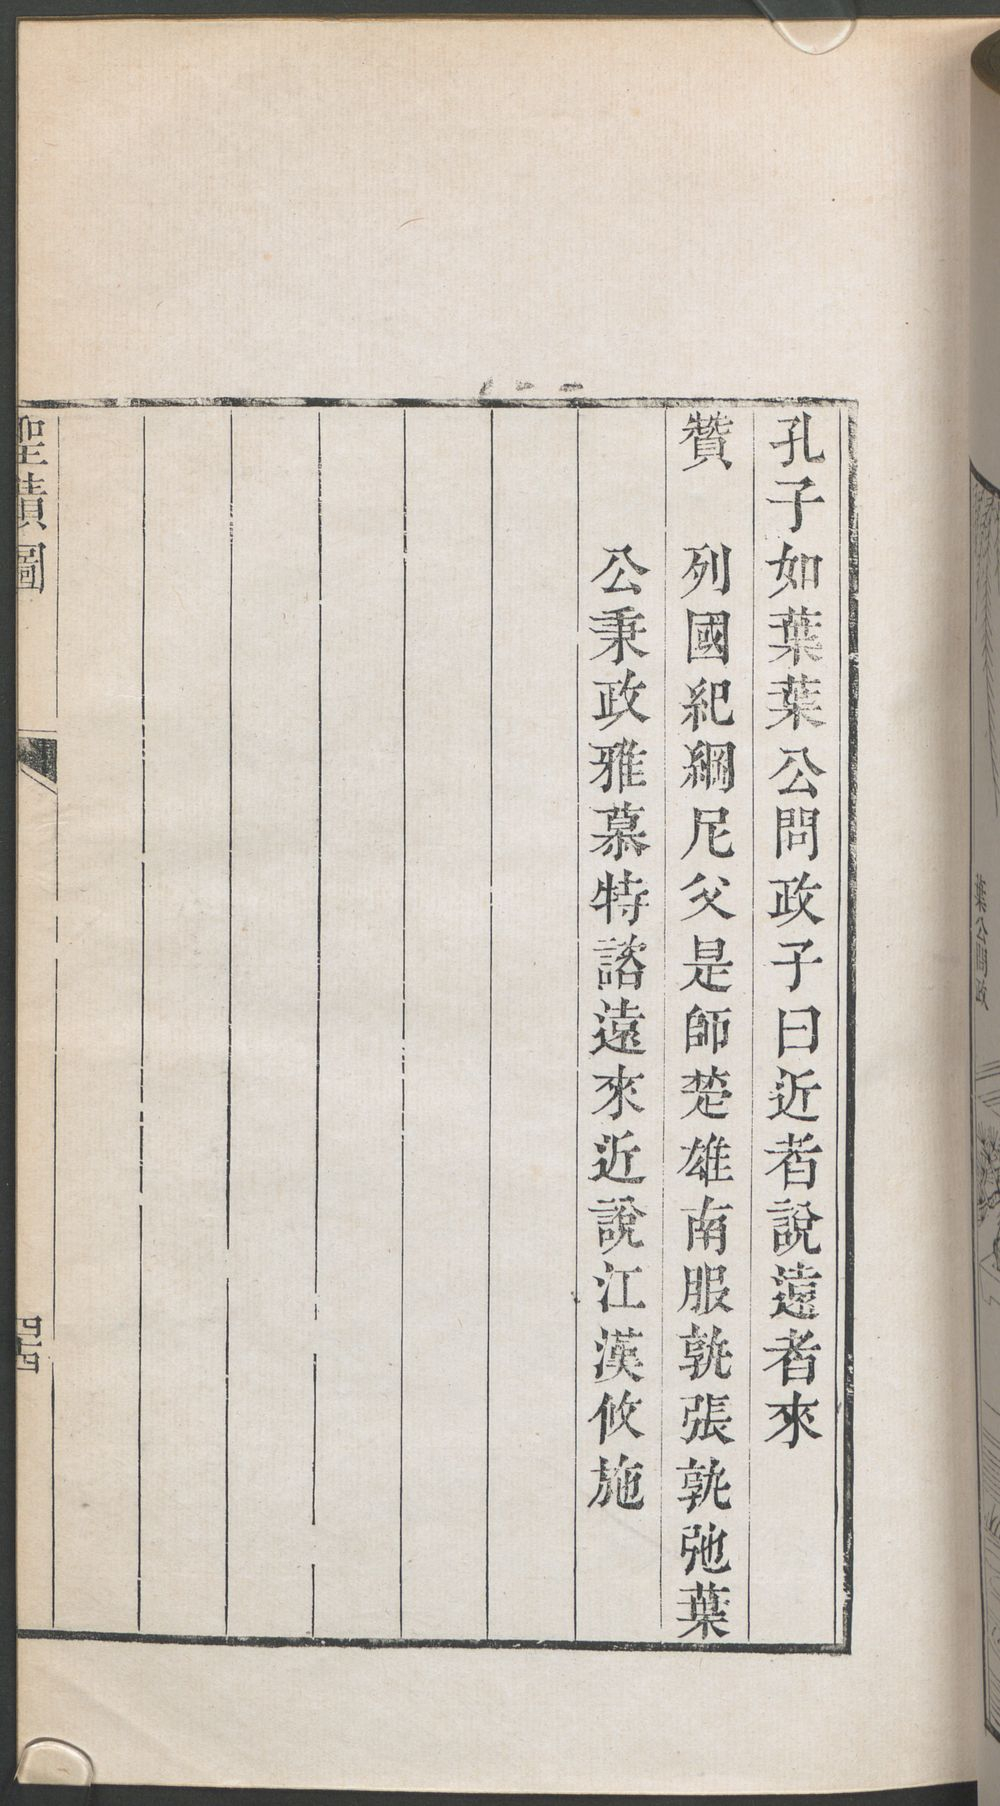 葉公問政
孔子如葉葉公問政子曰近者說遠者來
贊　列國紀綱尼父是師楚雄南服孰張孰弛葉
公秉政雅慕特諮遠來近說江漢攸施
聖蹟圖
四十四